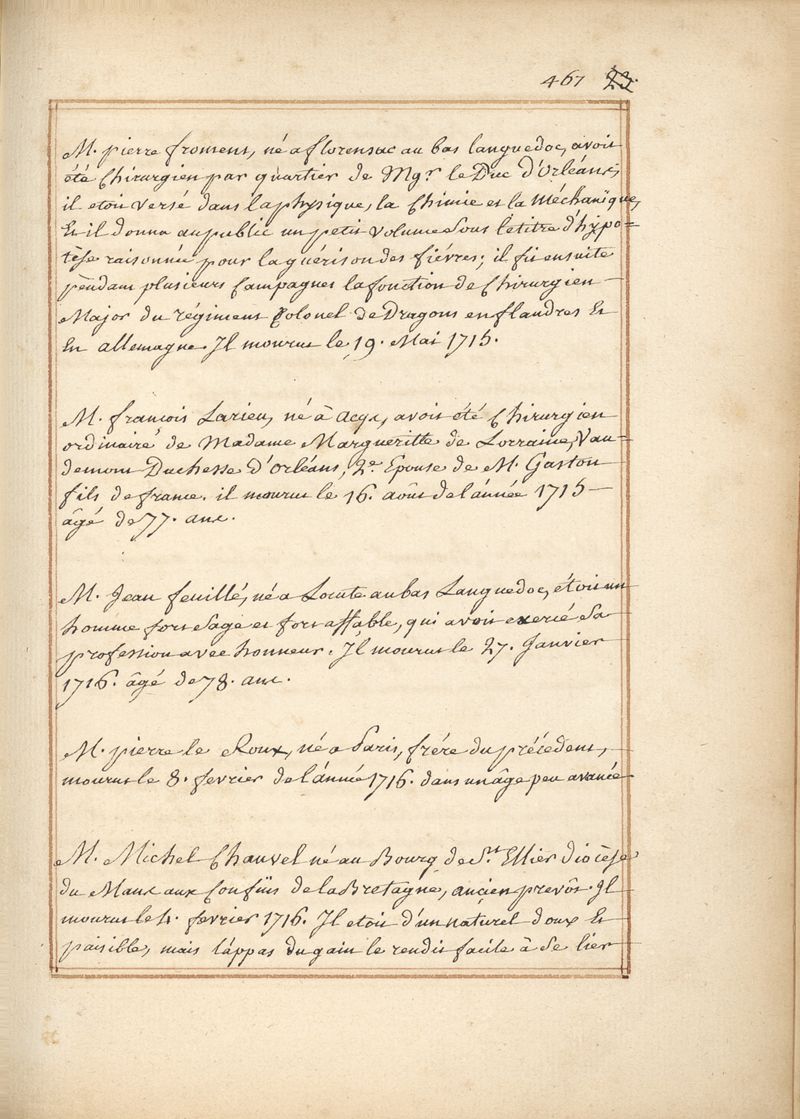 467 23.
M. pierre froment, né a florensac au bas languedoc, avoit
été Chirurgien par quartier de Mg.r le Duc d'Orléans,
il etoit versé dans la physique, la Chimie et la Méchanique,
Et il donna au public un petit volume sous le titre d'hypo=
tèse raisonnée pour la guérison des fiévres; il fit ensuite
pendant plusieurs Campagnes la fonction de Chirurgien
Major du régiment Colonel de Dragons en flandres Et
En allemagne. Il mourut le 19. Mai 1715.
M. francois Larieu, né à Acqs, avoit été Chirurgien
ordinaire de Madame Margueritte de Lorraine, Vau=
demont Duchesse d'Orléans, 2.e Epouse de M. Gaston
fils de france. il mourut le 16. août de l'année 1715
âgé de 77. ans.
M. Jean feuillé, né a au bas Languedoc, étoit un
homme fort sage et fort affable, qui avoit exercé sa
profession avec honneur. Il mourut le 27. Janvier
1716. âgé de 78. ans.
M. pierre le Roux, né a Paris, frére du précédent,
mourut le 8. fevrier de l'année 1716. dans un âge peu avancé
M. Michel Chauvel né au Bourg de S.t Ellier diocèse
du Mans aux Confins de la Bretagne, ancien prevôt. Il
mourut le fevrier 1716. Il etoit d'un naturel doux Et
paisible, mais l'appas du gain le rendit facile à se lier